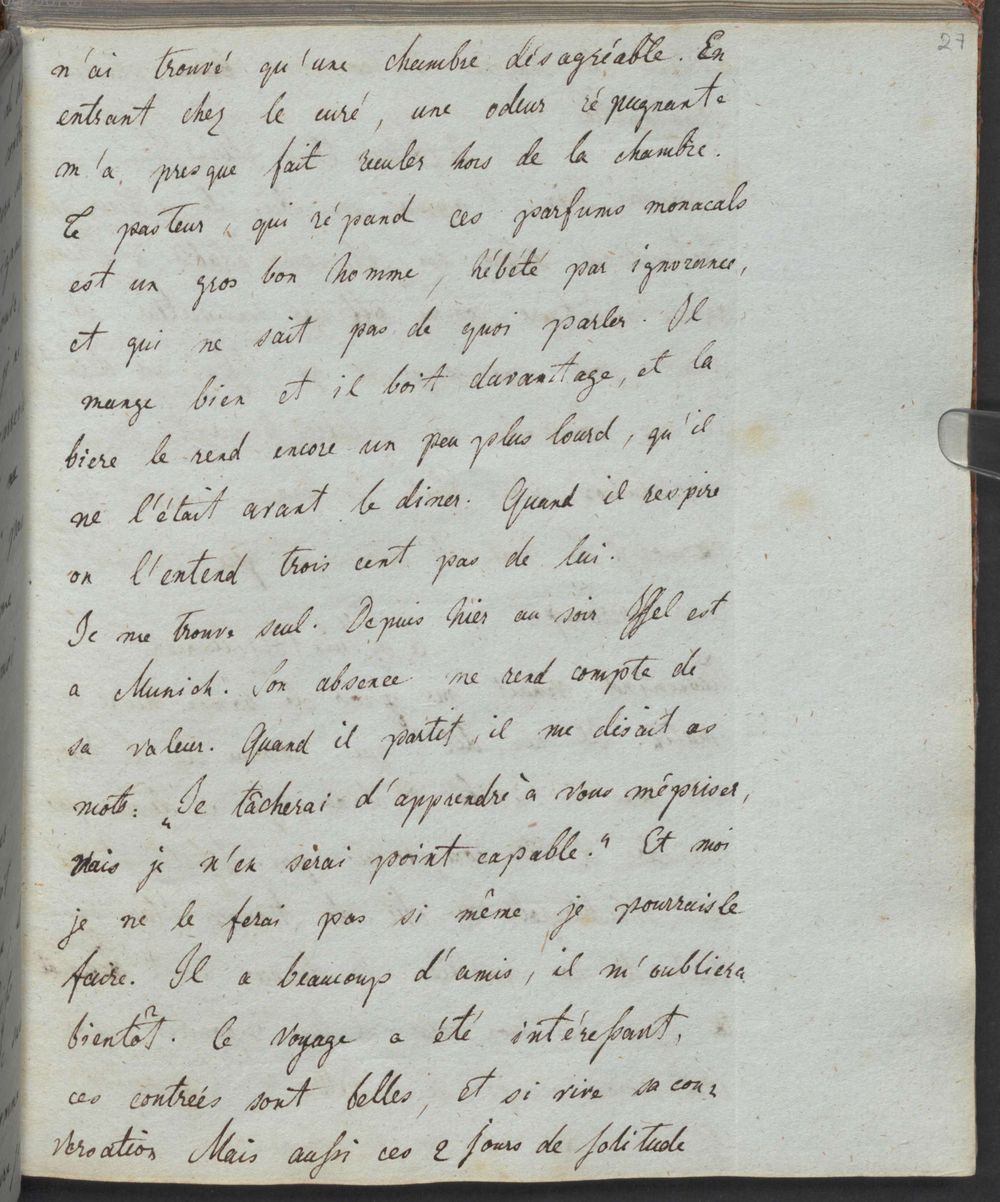 27
n'ai trouvé qu'une chambre désagréable. En
entrant chez le curé, une odeur répugnante
m'a presque fait reculer hors de la chambre.
Le pasteur, qui répand ces parfums monacals
est un gros bon homme, hébété par ignorance,
et qui ne sait pas de quoi parler. Il
mange bien et il boit davantage, et la
biere le rend encore un peu plus lourd, qu'il
ne l'était avant le diner. Quand il respire
on l'entend trois cent pas de lui.
Je me trouve seul. Depuis hier au soir Issel est
a Munich. Son absence me rend compte de
sa valeur. Quand il partit, il me disait ces
mots: „Je tâcherai d'apprendre à vous mépriser,
mais je n'en serai point capable.“ Et moi
je ne le ferai pas si même je pourrais le
faire. Il a beaucoup d'amis, il m'oubliera
bientôt. Ce voyage a été intéreßant,
ces contreés sont belles, et si vive sa con-
versation Mais außi ces 2 jours de solitude